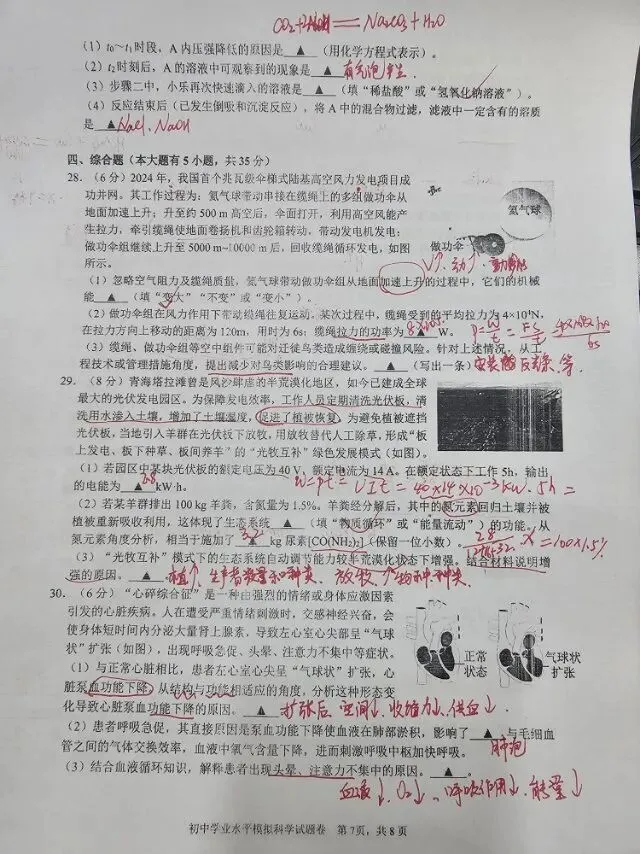 CO₂+2NaOH══Na₂CO₃+H₂O
（1）t₀～t₁时段，A内压强降低的原因是 ▲ （用化学方程式表示）。
（2）t₂时刻后，A的溶液中可观察到的现象是 ▲ 有气泡产生.
（3）步骤二中，小乐再次快速滴入的溶液是 ▲ （填“稀盐酸”或“氢氧化钠溶液”）。
（4）反应结束后（已发生倒吸和沉淀反应），将A中的混合物过滤，滤液中一定含有的溶质
是 ▲ NaCl、NaOH
四、综合题（本大题有5小题，共35分）
28.（6分）2024年，我国首个兆瓦级伞梯式陆基高空风力发电项目成
功并网。其工作过程为：氦气球带动串接在缆绳上的多组做功伞从
地面加速上升；升至约500m高空后，伞面打开，利用高空风能产
生拉力，牵引缆绳使地面卷扬机和齿轮箱转动，带动发电机发电；
做功伞组继续上升至5000m~10000m后，回收缆绳循环发电，如图
所示。
氦气球
做功伞
V↑、动↑、
（1）忽略空气阻力及缆绳质量，氦气球带动做功伞组从地面加速上升的过程中，它们的机械
能 ▲ （填“变大”“不变”或“变小”）。
（2）做功伞组在风力作用下带动缆绳往复运动。某次过程中，缆绳受到的平均拉力为4×10⁴N，
在拉力方向上移动的距离为120m，用时为6s；缆绳拉力的功率为 ▲ W。 P=W/t=FS/t
（3）缆绳、做功伞组等空中组件可能对迁徙鸟类造成缠绕或碰撞风险。针对上述情况，从工
程技术或管理措施角度，提出减少对鸟类影响的合理建议。 ▲ （写出一条）安装 反光条、等.
29.（8分）青海塔拉滩曾是风沙肆虐的半荒漠化地区，如今已建成全球
最大的光伏发电园区。为保障发电效率，工作人员定期清洗光伏板，清
洗用水渗入土壤，增加了土壤湿度，促进了植被恢复。为避免植被遮挡
光伏板，当地引入羊群在光伏板下放牧，用放牧替代人工除草，形成“板
上发电、板下种草、板间养羊”的“光牧互补”绿色发展模式（如图）。
（1）若园区中某块光伏板的额定电压为40V、额定电流为14A。在额定状态下工作5h，输出
的电能为 ▲ 2.8 kW·h。 W=Pt=UIt=40×14×10⁻³kw·5h=
（2）若某羊群排出100kg羊粪，含氮量为1.5%。羊粪经分解后，其中的氮元素回归土壤并被
植被重新吸收利用，这体现了生态系统 ▲ （填“物质循环”或“能量流动”）的功能。从
氮元素角度分析，相当于施加了 ▲ 3.2 kg尿素[CO(NH₂)₂]（保留一位小数）。 x=100×1.5%
（3）“光牧互补”模式下的生态系统自动调节能力较半荒漠化状态下增强。结合材料说明增
强的原因。 ▲ 植↑、生产者数量和种类、放牧、
30.（6分）“心碎综合征”是一种由强烈的情绪或身体应激因素
引发的心脏疾病。人在遭受严重情绪刺激时，交感神经兴奋，会
使身体短时间内分泌大量肾上腺素，导致左心室心尖部呈“气球
状”扩张（如图），出现呼吸急促、头晕、注意力不集中等症状。
正常
状态
气球状
扩张
（1）与正常心脏相比，患者左心室心尖呈“气球状”扩张，心
脏泵血功能下降。从结构与功能相适应的角度，分析这种形态变
化导致心脏泵血功能下降的原因。 ▲ 扩张后、空间↓、收缩力↓、供血↓.
（2）患者呼吸急促，其直接原因是泵血功能下降使血液在肺部淤积，影响了 ▲ 与毛细血
管之间的气体交换效率，血液中氧气含量下降，进而刺激呼吸中枢加快呼吸。 肺泡
（3）结合血液循环知识，解释患者出现头晕、注意力不集中的原因。 ▲ 。
血液↓、O₂↓、呼吸作用↓、能量↓
初中学业水平模拟科学试题卷 第7页，共8页